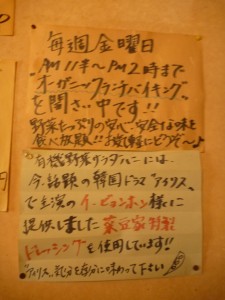 毎週金曜日
AM11時～PM2時まで
"オーガニックランチバイキング"
を開さい中です!!
野菜たっぷりの安心・安全な味を
食べ放題!!お気軽にどうぞ～♪
有機野菜サラダバーには、
今、話題の韓国ドラマ"アイリス"
で主演のイ・ビョンホン様に
提供しました菜豆家特製
ドレッシングを使用しています!!
"アイリス"気分を存分に味わって下さい